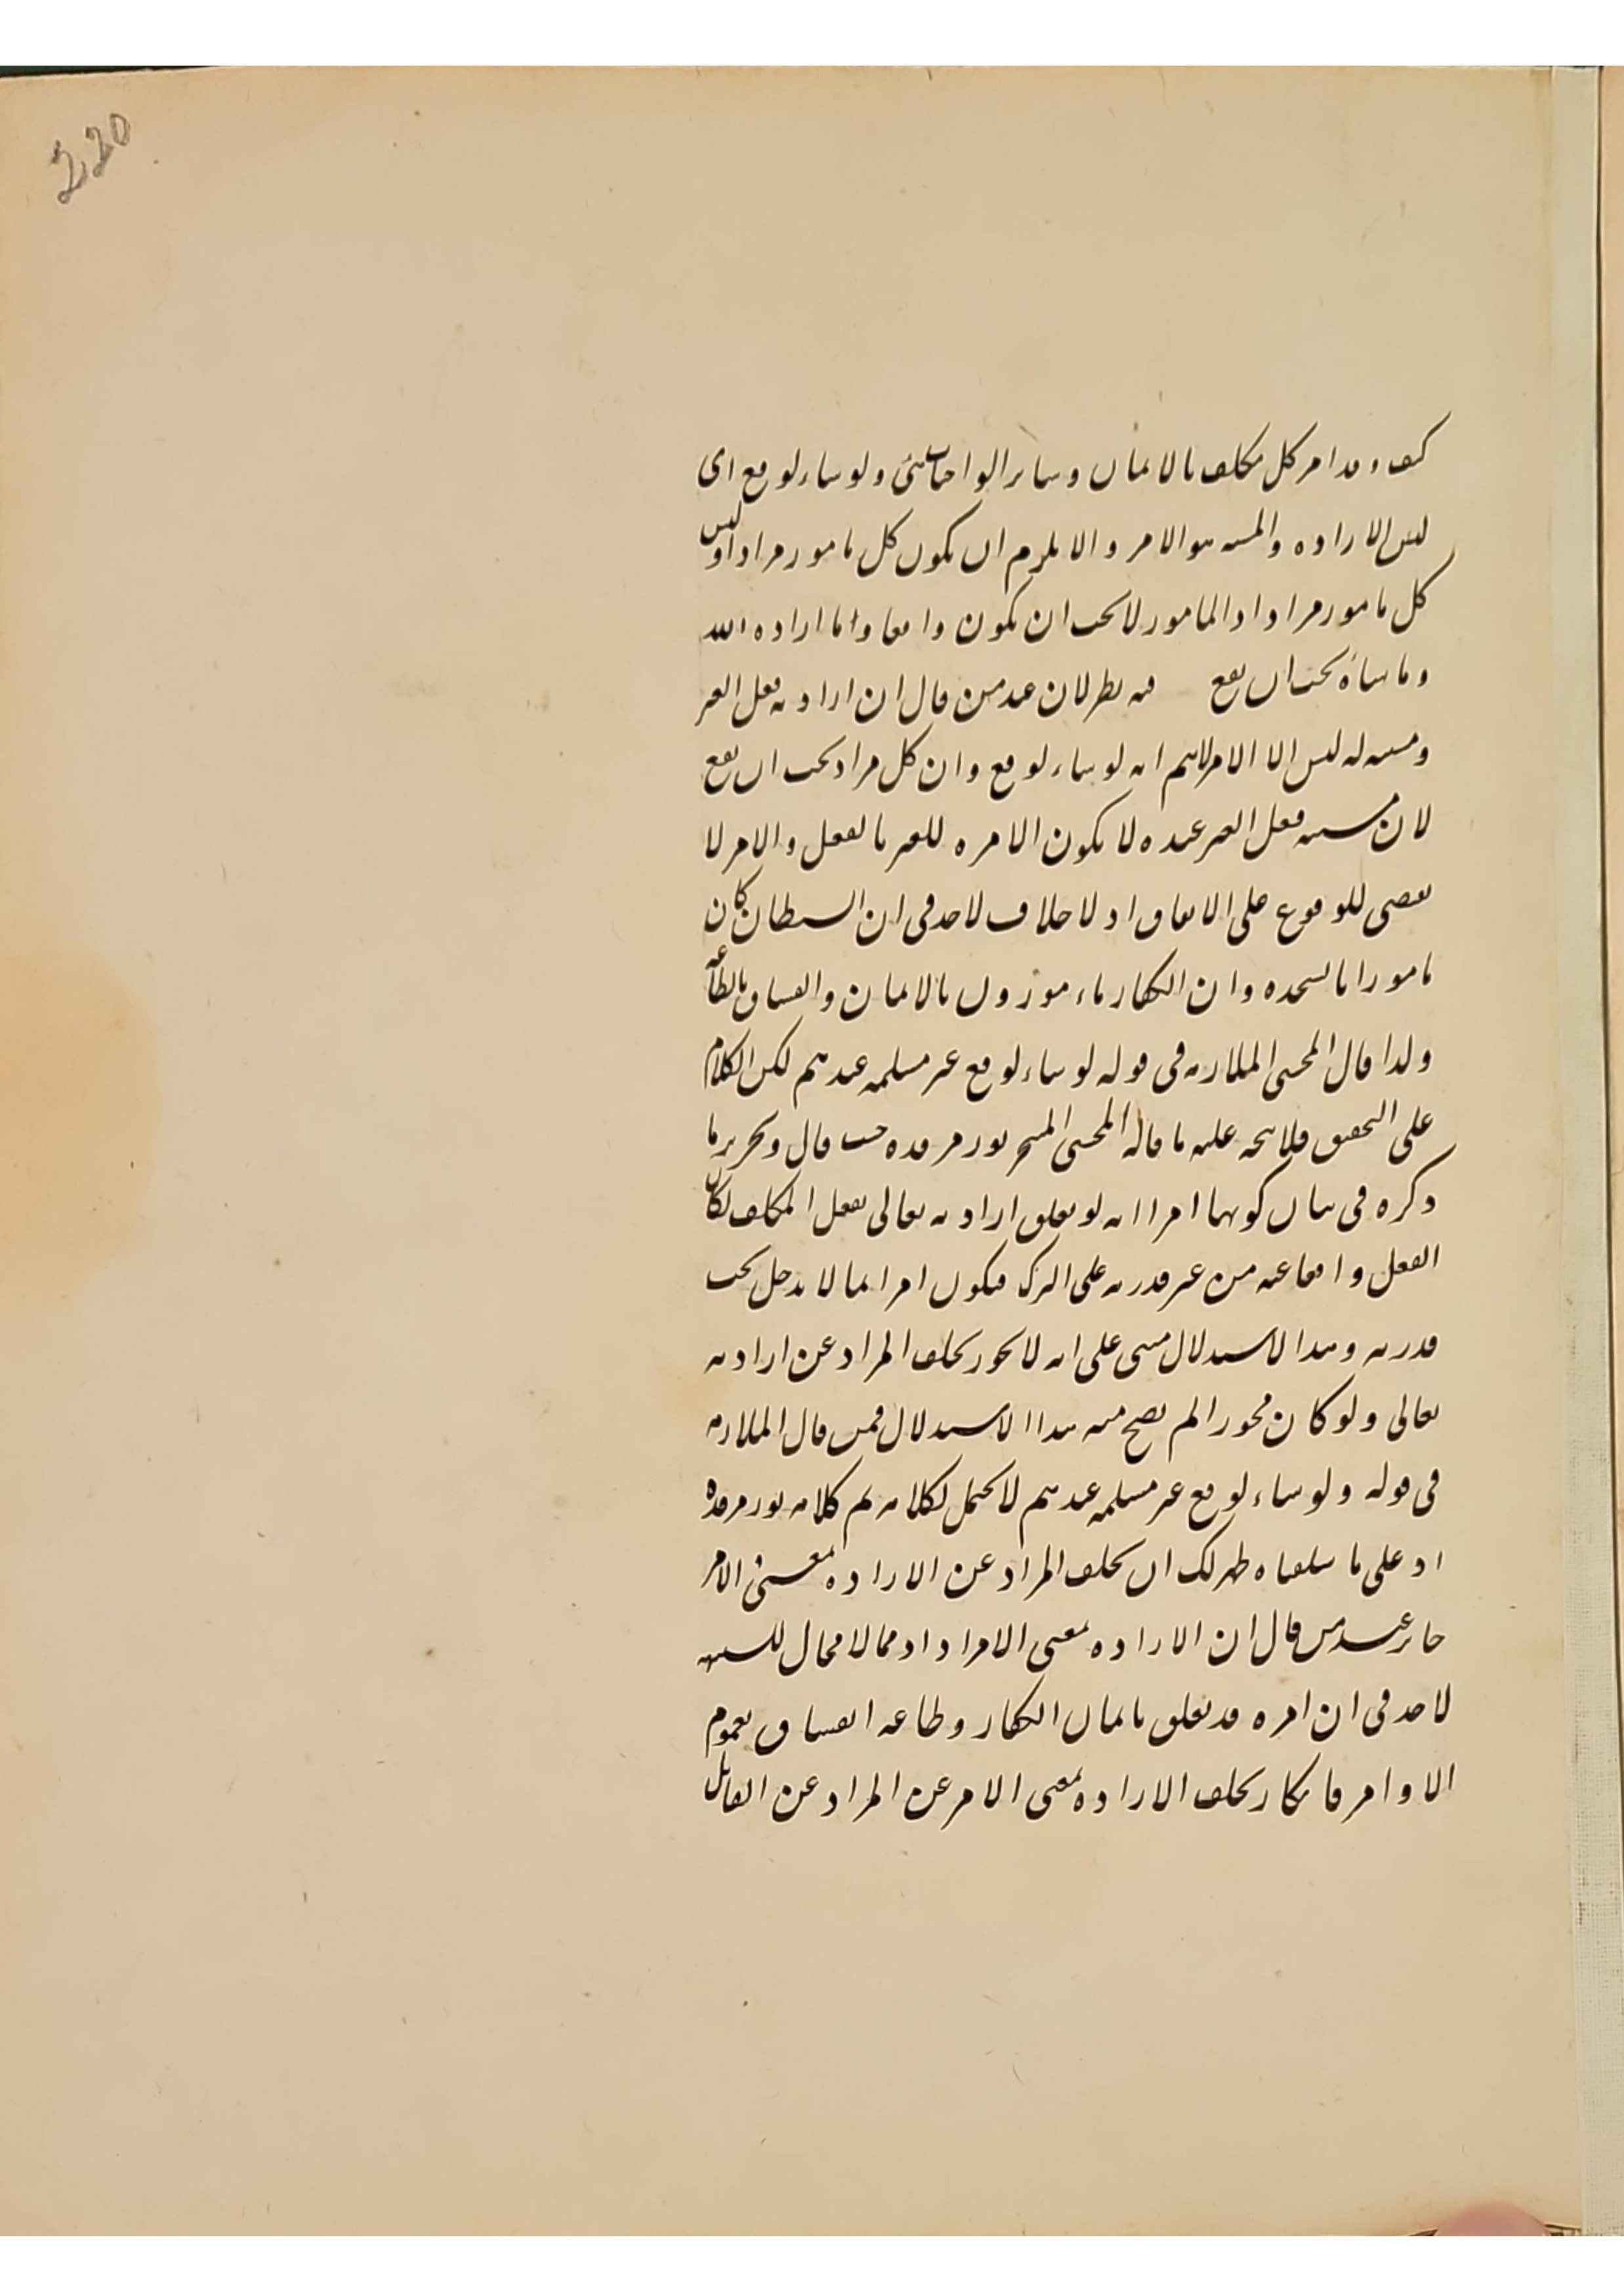 220
كيف وقد امر كل مكلف بالايمان وساير الواجبات شئ ولو شاء لوقع اى
ليس الارادة والمشية هو الامر والا يلزم ان يكون كل مامور مرادا وليس
كل مامور مرادا اذ المامور لا يجب ان يكون واقعا واما ارادة الله
وما شاءه يجب ان يقع فيه نظر لان عند من قال ان ارادته فعل الغير
ومشيته له ليس الا الامر لا يتم انه لو شاء لوقع وان كل مراد يجب ان يقع
لان مشيته فعل الغير عنده لا يكون الا امره للغير بالفعل والامر لا
يقتضى للوقوع على الاتفاق اذ لا خلاف لاحد فى ان الشيطان كان
مامورا بالسجدة وان الكفار ماءمورون بالايمان والفساق بالطاعة
ولذا قال المحشى الملازمة فى قوله لو شاء لوقع غير مسلمة عندهم لكن الكلام
على التحقيق فلا يتجه عليه ما قاله المحشى نور مرقده حيث قال وتحرير ما
ذكره فى بيان كونهما امرا انه لو تعلق ارادته تعالى بفعل المكلف لكان
الفعل واقعا عنه من غير قدرته على الترك فيكون امرا بما لا يدخل تحت
قدرته وهذا الاستدلال مبنى على انه لا يجوز تخلف المراد عن ارادته
تعالى ولو كان مجوزا لم يصح منه هذا الاستدلال فمن قال الملازمة
فى قوله ولو شاء لوقع غير مسلمة عندهم لا يحتمل لكلامه لم كلامه نور مرقده
اذ على ما تلقيناه ظهر لك ان تخلف المراد عن الارادة بمعنى الامر
جايز عند من قال ان الارادة بمعنى الامر اذ مما لا مجال للشبهة
لاحد فى ان امره قد تعلق بايمان الكفار وطاعة الفساق بعموم
الاوامر فانكار تخلف الارادة بمعنى الامر عن المراد عن القائل